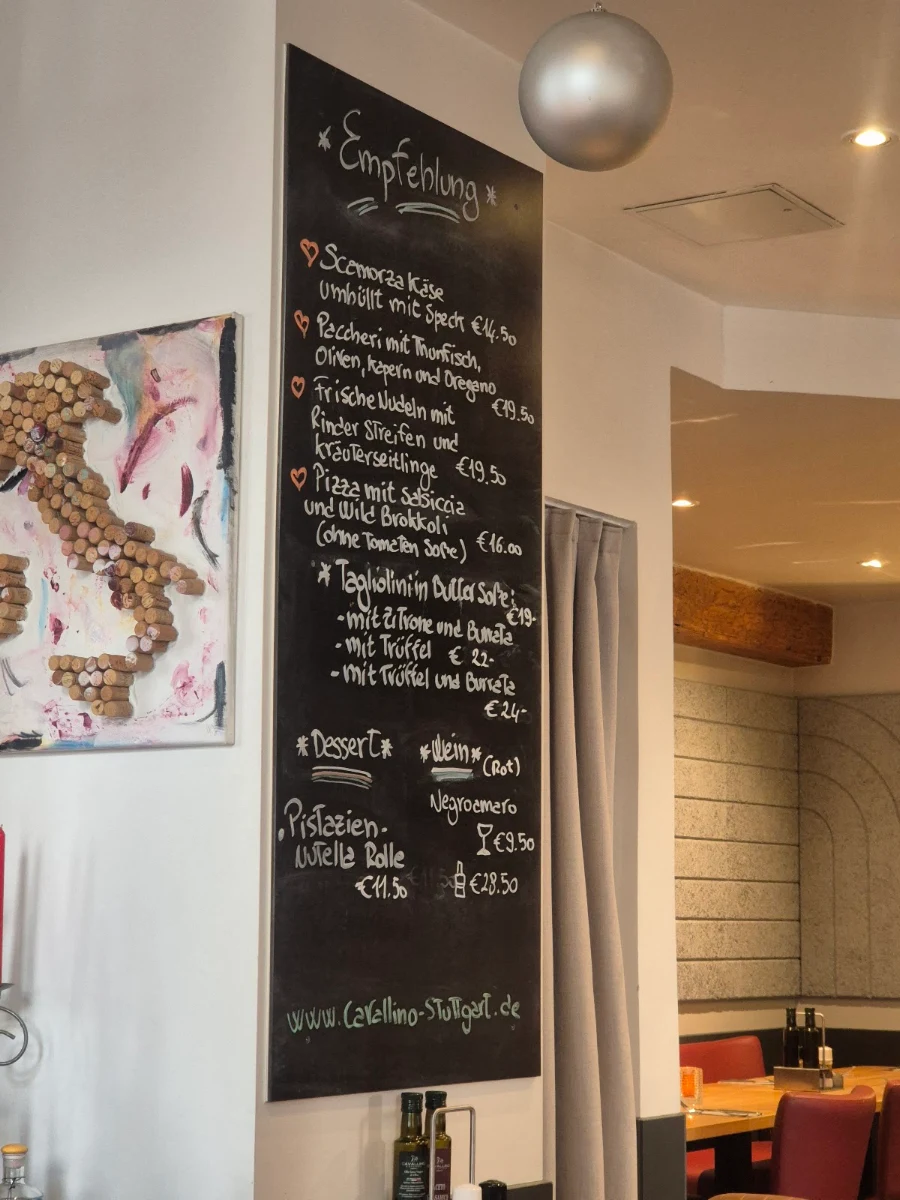 *Empfehlung*
Scamorza Käse
umhüllt mit Speck €14.50
Paccheri mit Thunfisch,
Oliven, Kapern und Oregano
€19.50
Frische Nudeln mit
Rinder Streifen und
kräuterseitlinge €19.50
Pizza mit Salsiccia
und Wild Brokkoli
(ohne Tomaten Soße) €16.00
*Tagliolini in Butter Soße:
€19-
-mit Zitrone und Burrata
-mit Trüffel € 22-
-mit Trüffel und Burrata
€24-
*Dessert*
Pistazien-
Nutella Rolle
€11.50
*Wein* (Rot)
Negroamaro
€9.50
€28.50
www.Cavallino-Stuttgart.de